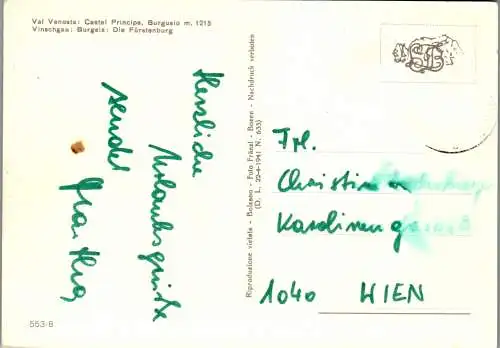 Val Venosta: Castel Principe, Burgusio m. 1215
Vinschgau: Burgeis: Die Fürstenburg
Herzliche
Urlaubsgrüße
sendet
Reproduzione vietata - Bolzano - Foto Fränzl - Bozen - Nachdruck verboten
(D. L. 22-4-1941 N. 633)
Frl.
Christine
Karolinen
1040 WIEN
553-8